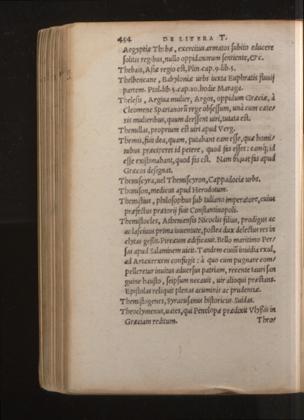 494 DE LITERA T.
Aegyptiæ Thebæ, exercitus armatos subito educere
solitæ regibus, nullo oppidanorum sentiente, &c.
Thebais, Asiæ regio est, Plin. cap. 9. lib. 5.
Thelbencane, Babyloniæ urbs iuxta Euphratis fluuij
partem. Ptol. lib. 5. cap. 20. hodie
Thelesis, Argiua mulier, Argos, oppidum Græciæ, à
Cleomene Spartanorũ rege obsessum, unà cum cæte
ris mulieribus, quum deessent uiri, tutata est.
Themillas, proprium est uiri apud Verg.
Themis, fuit dea, quam, putabant eam esse, quæ homi-
nibus præciperet id petere, quod fas esset: eamq; id
esse existimabant, quod fas est. Nam θέμις fas apud
Græcos designat.
Themiscyra, uel Themiscyron, Cappadociæ urbs.
Themison, medicus apud Herodotum.
Themistius, philosophus sub Iuliano imperatore, cuius
præfectus prætorij fuit Constantinopoli.
Themistocles, Atheniensis Neoclis filius, prodigus ac
ac lasciuus prima iuuentute, postea dux delectus res in
clytas gessit. Piræeum ædificauit. Bello maritimo Per-
sas apud Salaminem uicit. Tandem ciuili inuidia exul,
ad Artaxerxem confugit: à quo cum pugnare com-
pelleretur inuitus aduersus patriam, recente tauri san
guine hausto, seipsum necauit, uir alioqui præstans.
Epistolas reliquit plenas acuminis ac prudentiæ.
Themistogenes, Syracusanus historicus. Suidas.
Theoclymenus, uates, qui Penelopæ prædixit Vlyssis in
Græciam reditum.
Theo-